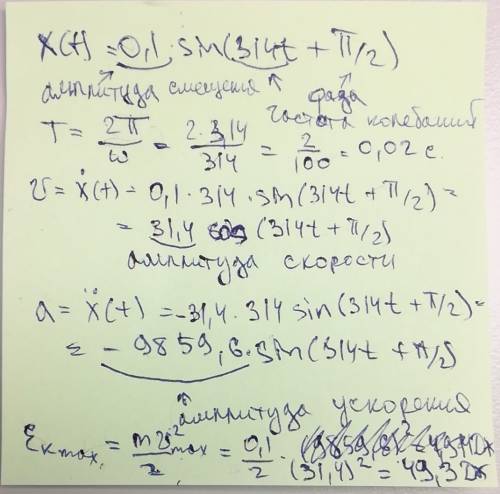 x(t) = 0,1 · sin(314t + π/2)
амплитуда смещения фаза
частота колебаний
T = 2π/ω = 2·3,14/314 = 2/100 = 0,02 с.
v = ẋ(t) = 0,1 · 314 · sin(314t + π/2) =
= 31,4 cos (314t + π/2)
амплитуда скорости
a = ẍ(t) = -31,4 · 314 sin(314t + π/2) =
= - 9859,6 · sin(314t + π/2)
амплитуда ускорения
Eк max = mv²max/2 = 0,1/2 · (31,4)² = 49,3 Дж